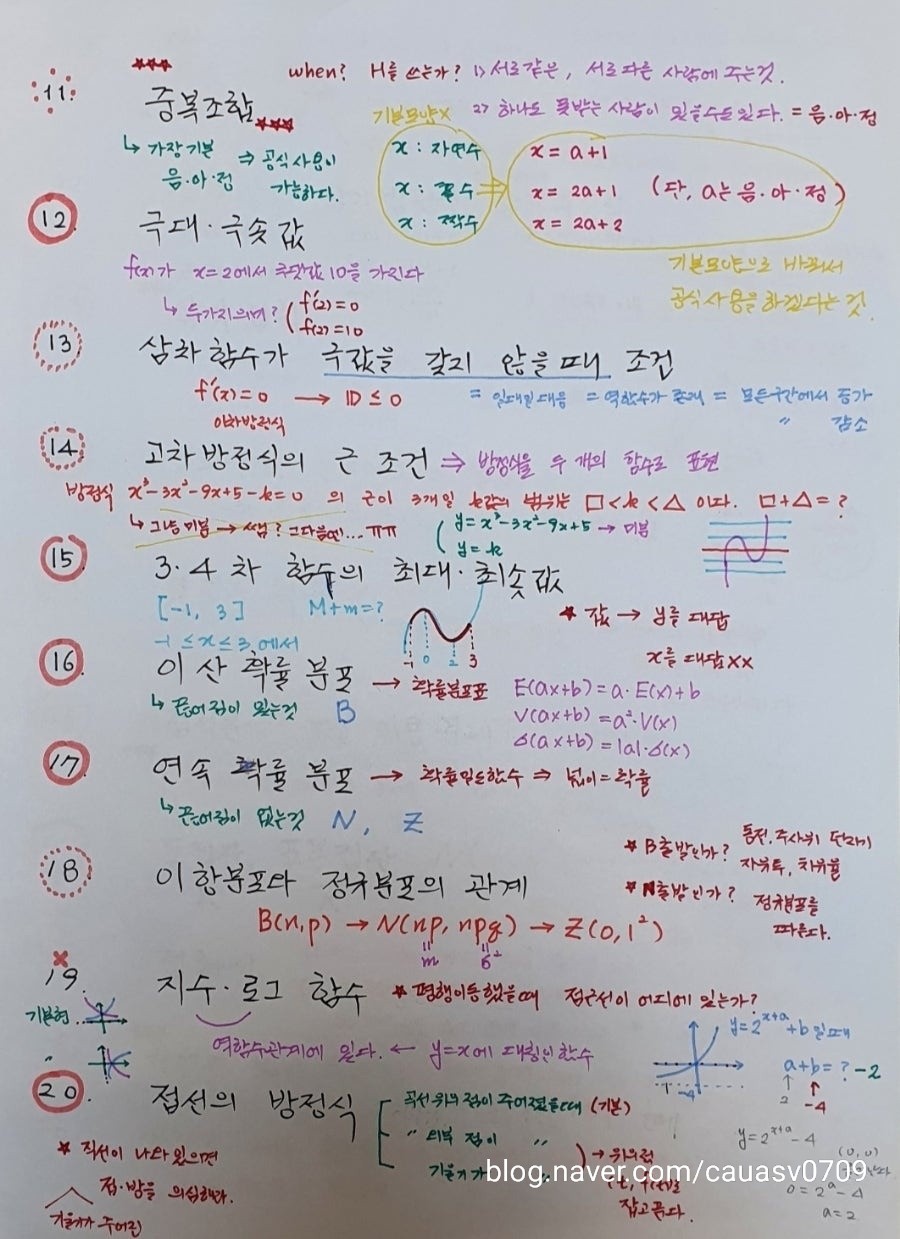 ★★★
when? H를 쓰는가? 1) 서로같은, 서로다른 사람에 주는것.
11. 중복조합 ★★★
2) 하나도 못받는 사람이 있을수도있다. = 음·아·정
기본모양X
↳ 가장기본 ⇒ 공식사용이
음·아·정 가능하다.
x : 자연수 x = a+1
x : 홀수 ⇒ x = 2a+1 (단, a는 음·아·정)
x : 짝수 x = 2a+2
기본모양으로 바꿔서
공식사용을하겠다는 것.
12. 극대·극솟값
f(x)가 x=2에서 극댓값 10을 가진다
↳ 두가지의미? f'(2)=0
f(2)=10
13 삼차함수가 극값을 갖지 않을때 조건
f'(x)=0 → D ≤ 0
이차방정식
= 일대일대응 = 역함수가 존재 = 모든구간에서 증가
〃 감소
14. 고차방정식의 근 조건 ⇒ 방정식을 두 개의 함수로 표현
방정식 x³-3x²-9x+5-k=0 의 근이 3개일 k값의 범위는 □<k<△ 이다. □+△=?
↳ 그냥미분 → 쌤? 그다음엔... ㅠㅠ
y=x³-3x²-9x+5 → 미분
y=k
15 3·4차 함수의 최대·최솟값
[-1, 3] M+m=?
-1 ≤ x ≤ 3 에서
-1 0 2 3
★ 값 → y를 대답
x를 대답xx
16. 이산확률분포 → 확률분포표
↳ 끊어짐이 있는것 B
E(ax+b)=a·E(x)+b
V(ax+b)=a²·V(x)
σ(ax+b)=|a|·σ(x)
17. 연속 확률 분포 → 확률밀도함수 ⇒ 넓이=확률
↳ 끊어짐이 없는것 N, Z
18. 이항분포와 정규분포의 관계
B(n,p) → N(np, npq) → Z(0,1²)
m σ²
★ B출발인가? 동전, 주사위 던지기
자유투, 치유율
★ N출발인가? 정규분포를
따른다.
19. 지수·로그 함수 ★ 평행이동했을때 점근선이 어디에 있는가?
기본형
〃
역함수관계에 있다. ← y=x에 대칭인함수
y=2^{x+a}+b 일때
a+b=? -2
2 -4
-4
y=2^{x+a}-4
(0,0)
0=2^a-4
a=2
20. 접선의 방정식
곡선 위의 점이 주어졌을때 (기본)
〃 외부 점이 〃
기울기가 〃
→ 위의점
(t, f(t))를
잡고푼다.
★ 직선이 나와 있으면
접·방을 의심해라.
기울기가 주어진
blog.naver.com/cauasv0709